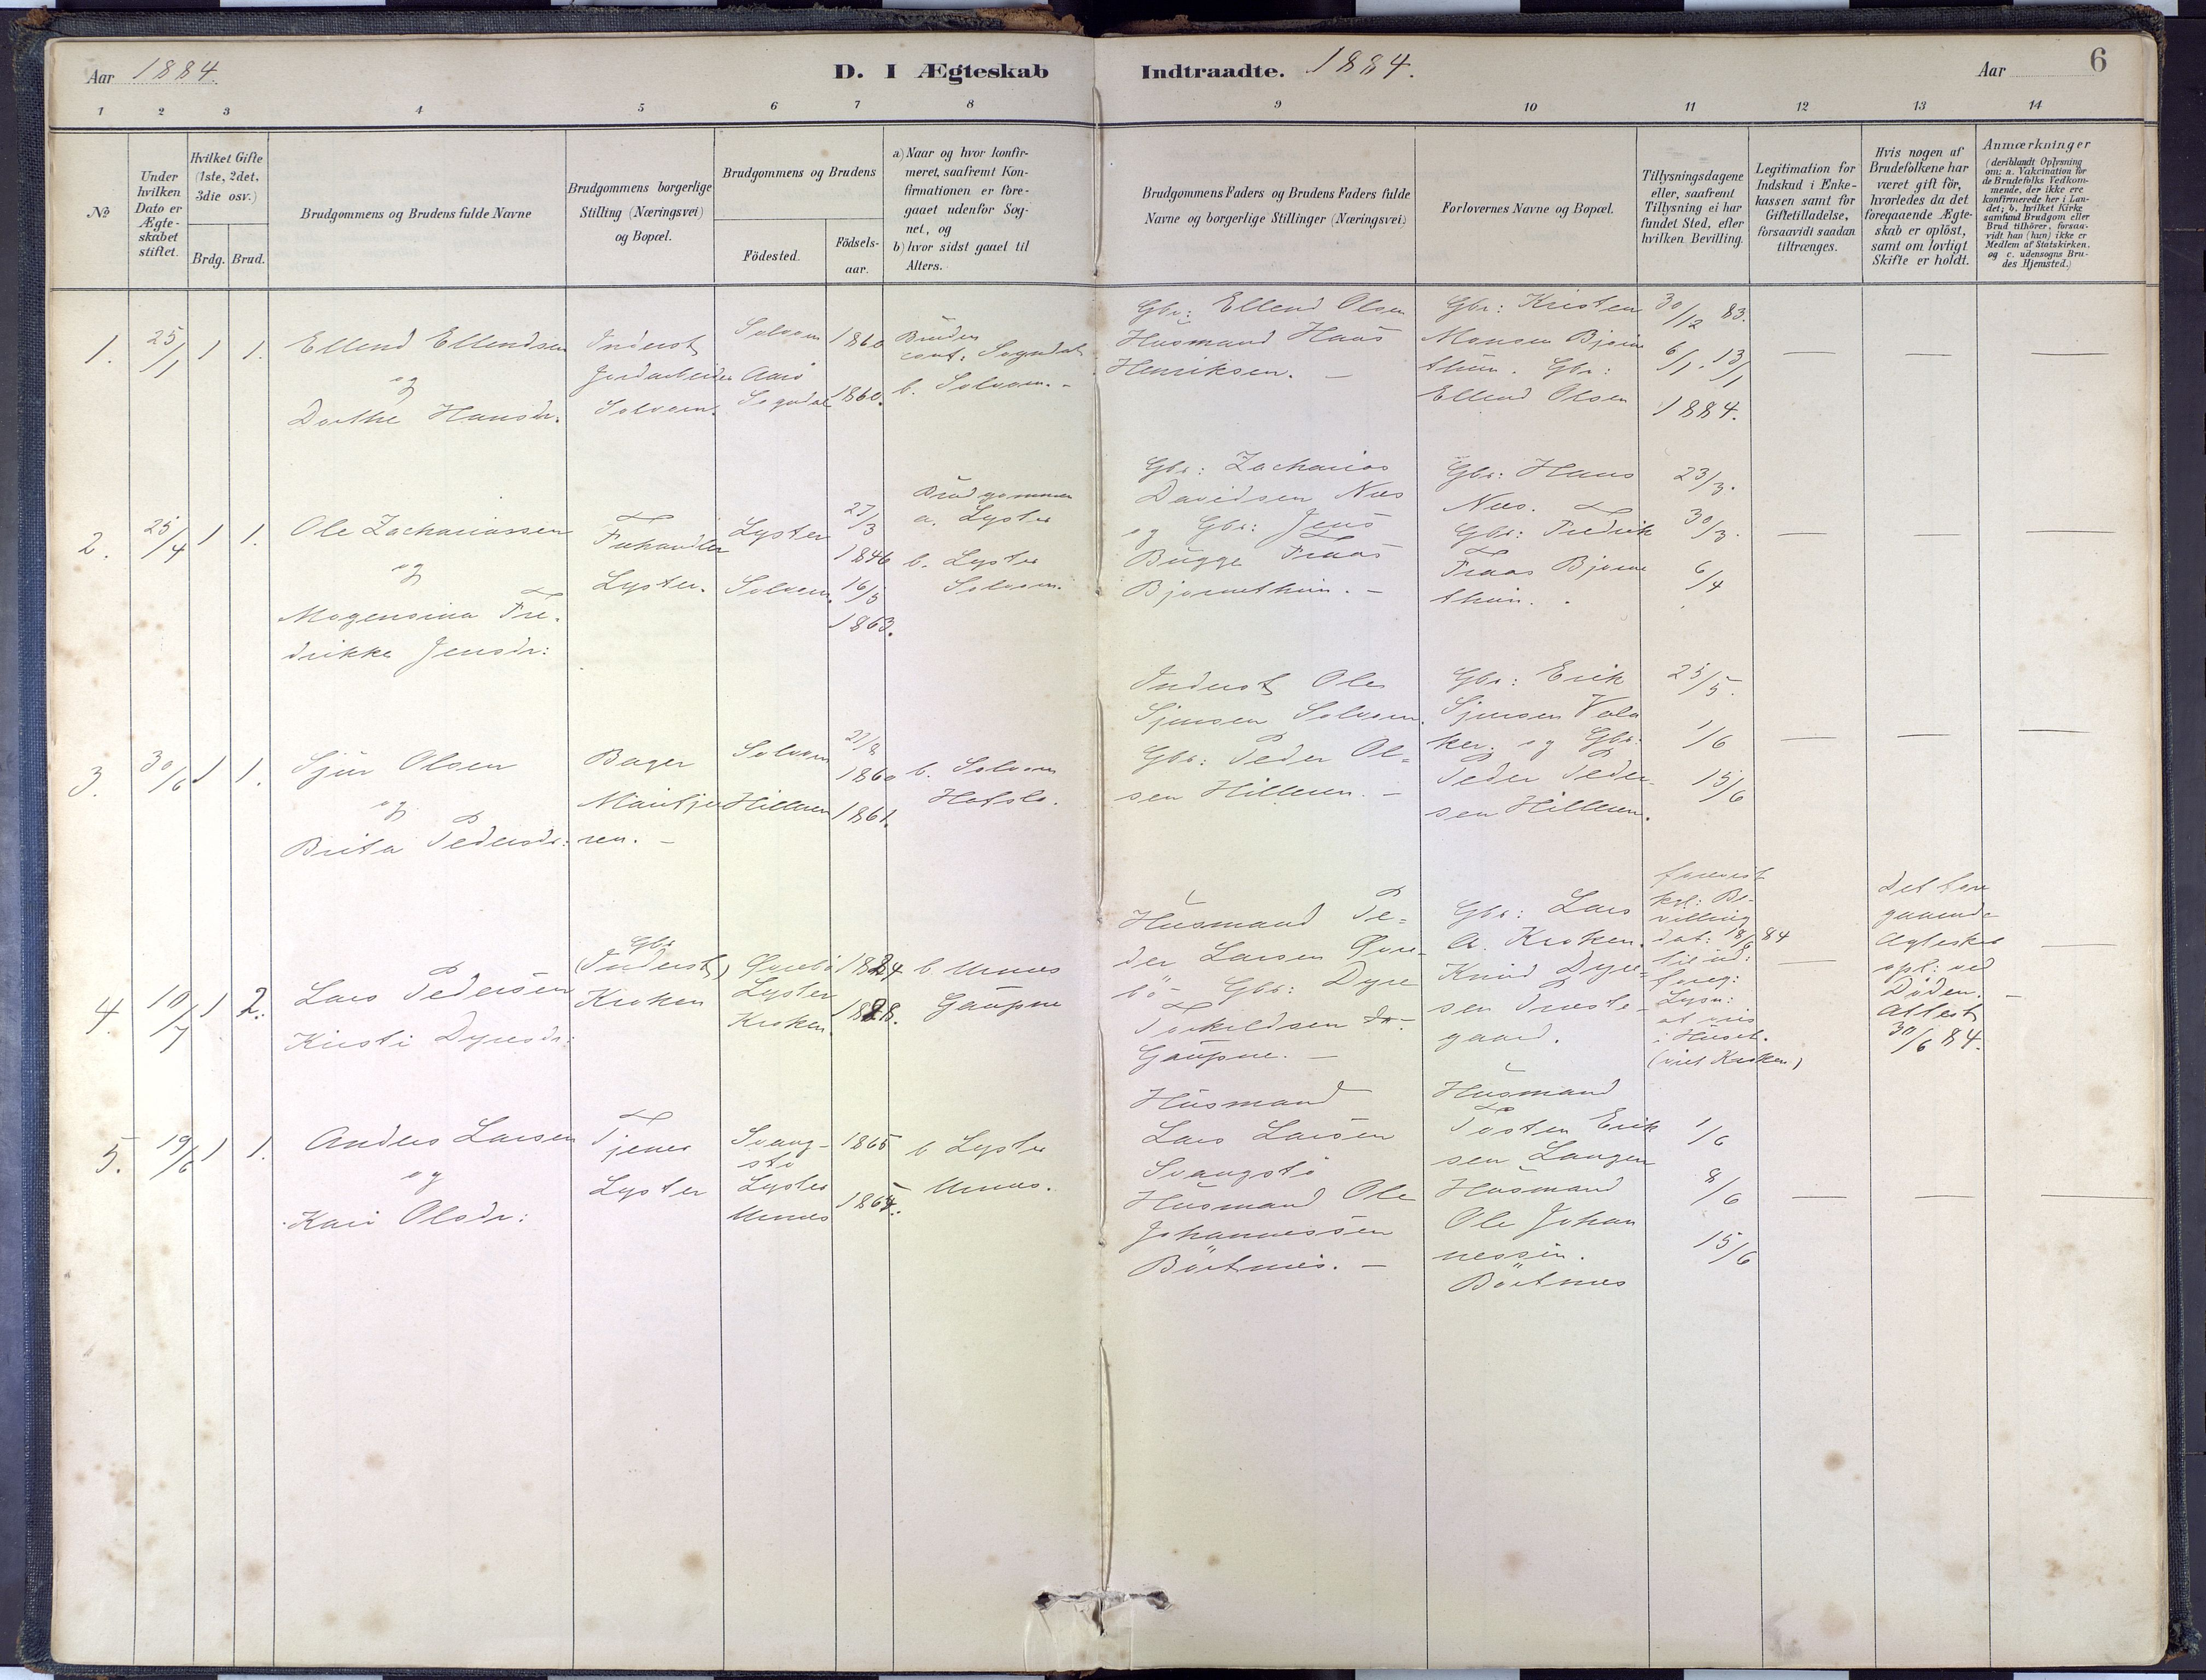 Aar 1884.
D. I Ægteskab
Indtraadte. 1884.
Aar
6
1 2 3 4 5 6 7 8 9 10 11 12 13 14
No
Under hvilken Dato er Ægte-skabet stiftet.
Hvilket Gifte (1ste, 2det, 3die osv.)
Brdg. Brud.
Brudgommens og Brudens fulde Navne
Brudgommens borgerlige
Stilling (Næringsvei)
og Bopæl.
Brudgommens og Brudens
Födested.
Födsels-
aar.
a) Naar og hvor konfir-
meret, saafremt Kon-
firmationen er fore-
gaaet udenfor Sog-
net, og
b) hvor sidst gaaet til
Alters.
Brudgommens Faders og Brudens Faders fulde
Navne og borgerlige Stillinger (Næringsvei)
Forlovernes Navne og Bopæl.
Tillysningsdagene
eller, saafremt
Tillysning ei har
fundet Sted, efter
hvilken Bevilling.
Legitimation for
Indskud i Enke-
kassen samt for
Giftetilladelse,
forsaavidt saadan
tiltrænges.
Hvis nogen af
Brudefolkene har
været gift för,
hvorledes da det
foregaaende Ægte-
skab er oplöst,
samt om lovligt
Skifte er holdt.
Anmærkninger
(deriblandt Oplysning
om: a. Vakcination for
de Brudefolks Vedkom-
mende, der ikke ere
konfirmerede her i Lan-
det; b. hvilket Kirke
samfund Brudgom eller
Brud tilhörer, forsaa-
vidt han (hun) ikke er
Medlem af Statskirken,
og c. udensogns Bru-
des Hjemsted.)
1. 25/1 1 1.
Ellend Ellendsen
og
Dorthe Hansdr.
Inderst
Jordarbeider
Solvorn.
Solvorn 1860
Aarö
Sogndal 1860.
Bruden
conf: Sogndal
b. Solvorn. -
Gbr: Ellend Olsen
Husmand Hans
Henriksen. -
Gbr: Kristen
Monsen Bjørne
thun. Gbr:
Ellend Olsen
30/12 83.
6/1. 13/1
1884.
2. 25/4 1 1.
Ole Zachariassen
og
Mogensina Fre-
drikke Jensdr:
Fuhandler
Lyster.
Lyster 27/3
1846
Solvorn. 16/5
1863.
Brudgommen
a. Lyster
b. Lyster
Solvorn.
Gbr: Zacharias
Davidsen Næs
og Gbr: Jens
Bugge Traas
Bjørnethun. -
Gbr: Hans
Næs.
Gbr: Fredrik
Traas Bjørne
thun.
23/3.
30/3.
6/4
3. 30/6 1 1.
Sjur Olsen
og
Brita Pedersdr:
Bager
Marifjæ
ren. -
Solvorn 21/8
1860
Hillern 1861.
b. Solvorn
Hafslo.
Inderst Ole
Sjursen Solvorn.
Gbr: Peder Ol-
sen Hilleren. -
Gbr: Erik
Sjursen Vala
ker. og Gbr:
Peder Peder-
sen Hilleren.
25/5.
1/6
15/6
4. 10/7 1 2.
Lars Pedersen
Kirsti Dyresdr:
Gbr
(Inderst)
Kroken
Qvrebö 1824
Lyster
Kroken. 1828.
b. Urnes
Gaupne
Husmand Pe-
der Larsen Qvre-
bö - Gbr: Dyre
Torkildsen
Gaupne. -
Gbr: Lars
A. Kroken.
Knud Dyre-
sen Preste-
gaard.
forevist
kgl: Be-
villing
dat: 18/6 84
til ud:
foreg:
Lysn:
at vies
i Huset.
(viet Kroken)
Det fore
gaaende
Ægteskab
opl: ved
Døden. -
Attest
30/6 84.
5. 19/6 1 1.
Anders Larsen
og
Kari Olsdr:
Tjener
Lyster
Svang-
stø 1865
Lyster
Urnes 1864.
b Lyster
Urnes.
Husmand
Lars Larsen
Svangstø
Husmand Ole
Johannessen
Börtnes. -
Husmand
Tosten Erik
sen Langen
Husmand
Ole Johan
nessen.
Börtnes
1/6
8/6
15/6